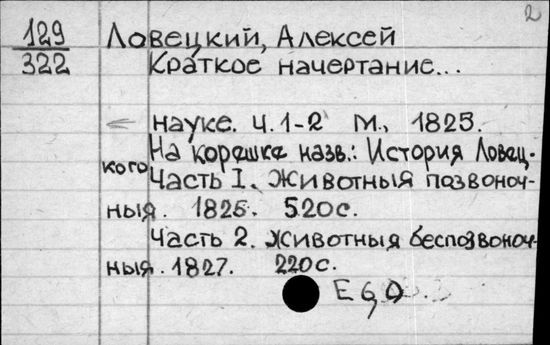 2
129
322
Ловецкий, Алексей
Краткое начертание...
науке. ч. 1-2 М., 1825.
На корешке назв.: История Ловец-
кого
Часть I. Животныя позвоноч-
ныя. 1825. 520с.
Часть 2. Животныя беспозвоноч-
ныя. 1827. 220с.